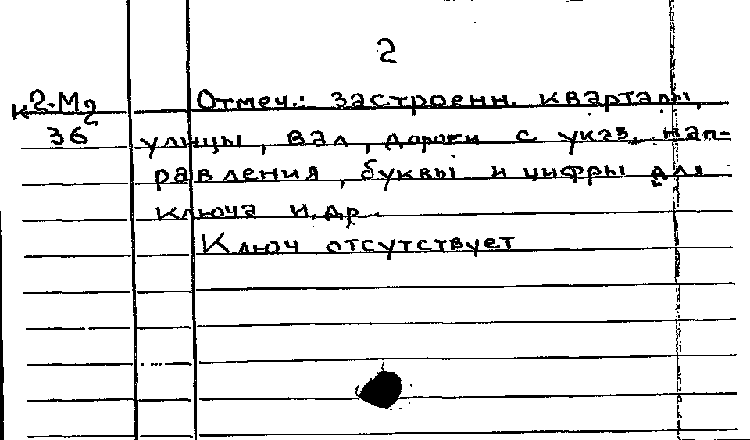 2
К2-М2
36
Отмеч.: застроенн. кварталы,
улицы, вал, дороги с указ. нап-
равления, буквы и цифры для
ключа и др.
Ключ отсутствует